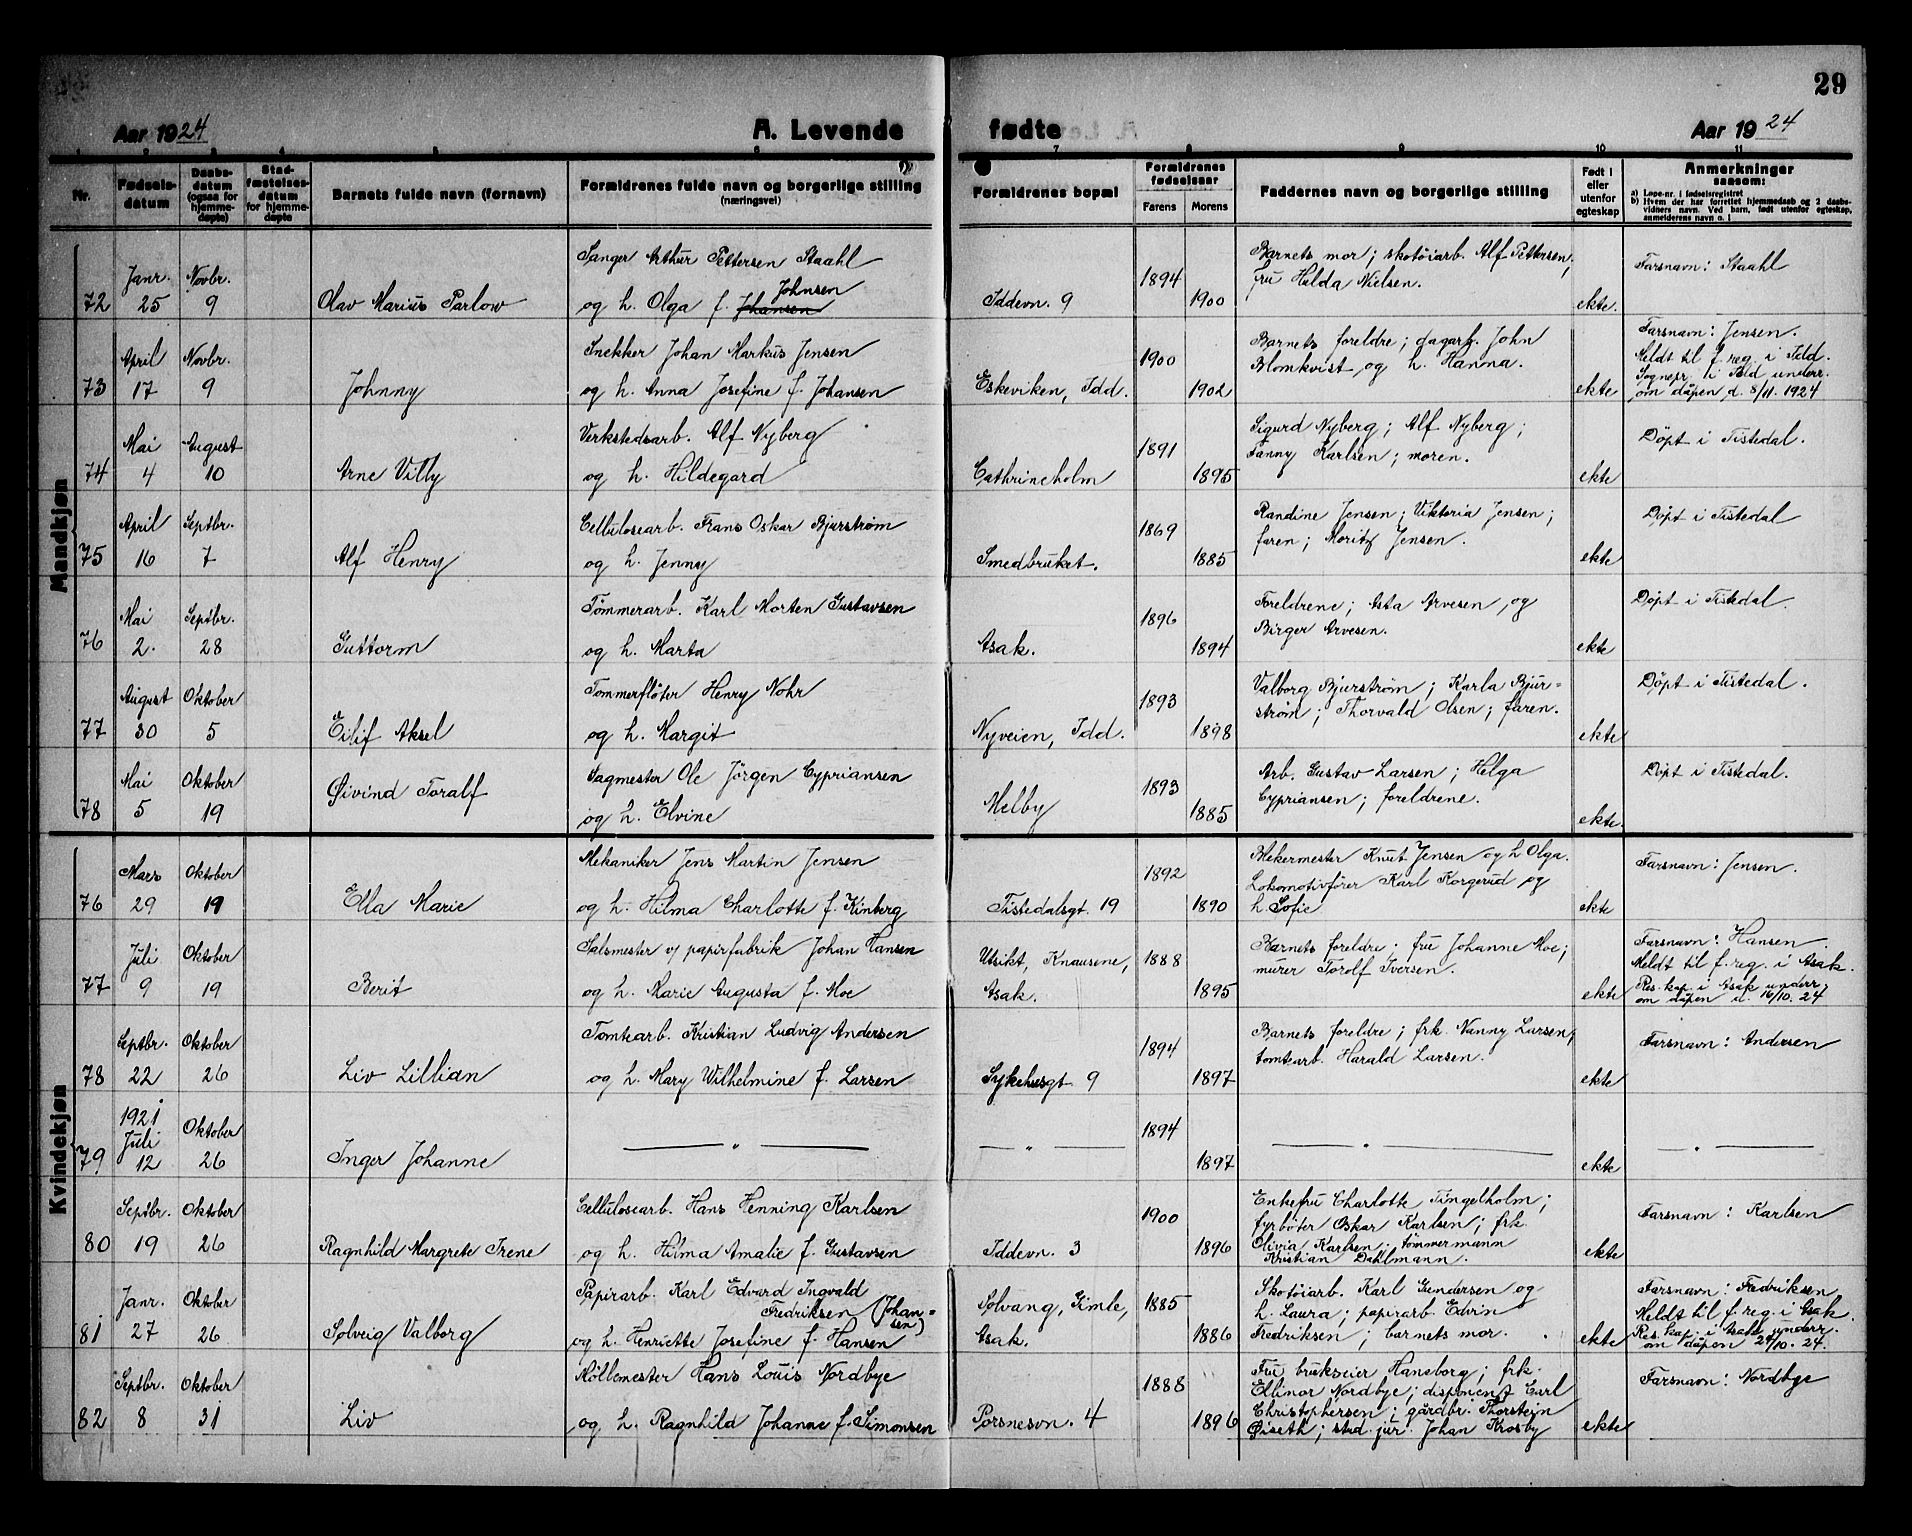 29
Aar 1924 A. Levende fødte Aar 1924
1 2 3 4 5 6 7 8 9 10 11
Nr.
Fødsels-
datum
Daabs-
datum
(ogsaa for
hjemme-
døpte)
Stad-
fæstelses-
datum
for hjemme-
døpte
Barnets fulde navn (fornavn)
Forældrenes fulde navn og borgerlige stilling
(næringsvei)
Forældrenes bopæl
Forældrenes
fødselsaar
Farens Morens
Faddernes navn og borgerlige stilling
Født i
eller
utenfor
egteskap
Anmerkninger
saasom:
a) Løpe-nr. i fødselsregistret
b) Hvem der har forrettet hjemmedaab og 2 daabs-
vidners navn. Ved barn, født utenfor egteskap,
anmelderens navn o. l
Mandkjøn
72
Janr.
25
Novbr.
9
Olav Marius Parlow
Sanger Arthur Pettersen Staahl
Johnsen
og h. Olga f. Johansen
Iddevn. 9
1894
1900
Barnets mor; skotöiarb. Alf Pettersen,
fru Hilda Nielsen.
ekte.
Farsnavn: Staahl
73
April
17
Novbr.
9
Johnny
Snekker Johan Markus Jensen
og h. Anna Josefine f. Johansen
Eskeviken, Idd.
1900
1902
Barnets foreldre; dagarb. John
Blomkvist, og h. Hanna.
ekte
Farsnavn: Jensen.
Meldt til f. reg. i Idd.
Sognepr. i Idd underr.
om dåpen d. 8/11. 1924
74
Mai
4
August
10
Arne Villy
Verkstedsarb. Alf Nyberg
og h. Hildegard
Cathrineholm
1891
1895
Sigurd Nyberg; Alf Nyberg;
Fanny Karlsen; moren.
ekte
Döpt i Tistedal.
75
April
16
Septbr.
7
Alf Henry
Cellulosearb. Frans Oskar Bjurstrøm
og h. Jenny
Smedbruket.
1869
1885
Randine Jensen; Viktoria Jensen;
faren; Moritz Jensen.
ekte
Döpt i Tistedal
76
Mai
2.
Septbr.
28
Guttorm
Tömmerarb. Karl Morten Gustavsen
og h. Marta
Asak.
1896
1894
Foreldrene; Asta Arvesen, og
Birger Arvesen.
ekte
Döpt i Tistedal.
77
August
30
Oktober
5
Eilif Aksel
Tommerflöter Henry Nohr
og h. Margit
Nyveien, Idd.
1893
1898
Valborg Bjurstrøm; Karla Bjur=
strøm; Thorvald Olsen; faren.
ekte
Döpt i Tistedal.
78
Mai
5
Oktober
19
Øivind Toralf
Sagmester Ole Jörgen Cypriansen
og h. Elvine
Melby
1893
1885
Arb. Gustav Larsen; Helga
Cypriansen; foreldrene.
ekte.
Döpt i Tistedal.
Kvindekjøn
76
Mars
29
Oktober
19
Ella Marie
Mekaniker Jens Martin Jensen
og h. Hilma Charlotte f. Kinberg
Tistedalsgt. 19
1892
1890
Blekermester Knut Jensen og h Olga.
Lokomotivförer Karl Korgerud og
h. Sofie
ekte
Farsnavn: Jensen.
77
Juli
9
Oktober
19
Berit
Salsmester v/ papirfabrik Johan Hansen
og h. Marie Augusta f. Moe
Utsikt, Knausene,
Asak.
1888
1895
Barnets foreldre; fru Johanne Moe;
murer Torolf Iversen.
ekte
Farsnavn: Hansen.
Meldt til f. reg. i Asak.
Res. kap i Asak underr.
om dåpen d. 16/10. 24
78
Septbr.
22
Oktober
26
Liv Lillian
Tomtearb. Kristian Ludvig Andersen
og h. Mary Wilhelmine f. Larsen
Sykehusgt. 9
1894
1897
Barnets foreldre; frk. Nanny Larsen;
tomtarb. Harald Larsen.
ekte
Farsnavn: Andersen
79
1921
Juli
12
Oktober
26
Inger Johanne
— " —
— " —
1894
1897
— " —
ekte
— " —
80
Septbr.
19
Oktober
26
Ragnhild Margrete Irene
Cellulosearb. Hans Henning Karlsen
og h. Hilma Amalie f. Gustavsen
Iddevn. 3
1900
1896
Enkefru Charlotte Tingelholm;
fyrböter Oskar Karlsen; frk.
Olivia Karlsen; tömmermann
Kristian Dahlmann.
ekte
Farsnavn: Karlsen
81
Janr.
27
Oktober
26
Solveig Valborg
Papirarb. Karl Edvard Ingvald
Fredriksen (Johan=
sen)
og h. Henriette Josefine f. Hansen
Solvang, Gimle,
Asak.
1885
1886
Skotöiarb. Karl Gundersen og
h. Laura; papirarb. Edvin
Fredriksen; barnets mor.
ekte
Farsnavn: Fredriksen
Meldt til f. reg. i Asak.
Res. kap. i Asak underr.
om dåpen 24/10. 24.
82
Septbr.
8
Oktober
31
Liv
Möllemester Hans Louis Nordbye
og h. Ragnhild Johanne f. Simonsen
Porsnesvn. 4
1888
1896
Fru brukseier Haneborg; frk.
Ellinor Nordbye; disponent Carl
Christophersen; gårdbr. Thorstein
Øiseth; stud. jur. Johan Krosby
ekte
Farsnavn: Nordbye